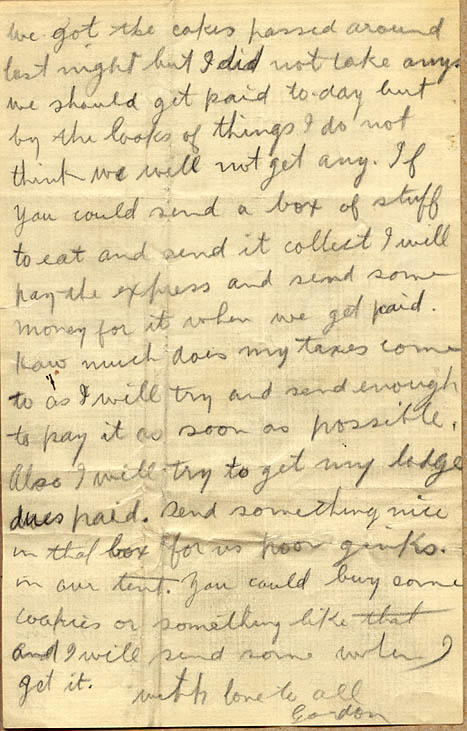 we got the cakes passed around
last night but I did not take any.
we should get paid to-day but
by the looks of things I do not
think we will not get any. If
You could send a box of stuff
to eat and send it collect I will
pay the express and send some
money for it when we get paid.
how much does my taxes come
to as I will try and send enough
to pay it as soon as possible.
Also I will try to get my lodge
dues paid. send something nice
in that box for us poor ginks.
in our tent. You could buy some
or something like that
and I will send some when I
get it. with love to all
Gordon